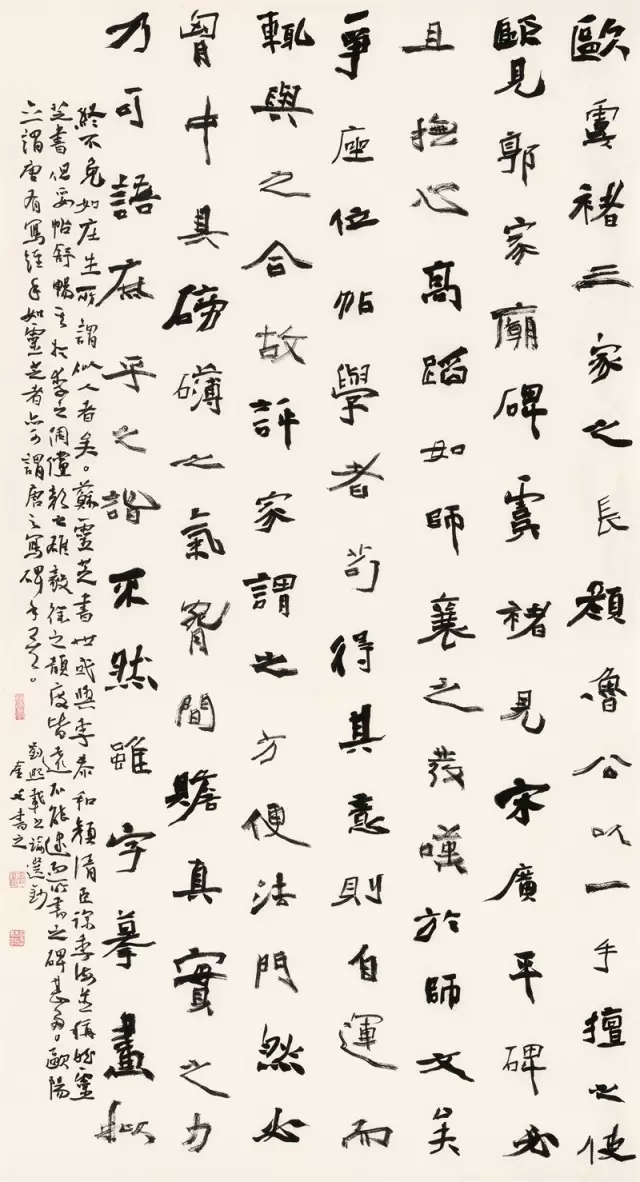 歐虞褚三家之長顏魯公以一手擅之使
歐見郭家廟碑虞褚見宋廣平碑必
且撫心高蹈如師襄之發嘆於師文矣
爭座位帖學者苟得其意則自運而
輒與之合故評家謂之方便法門然必
胷中具磅礴之氣間贍真實之力
乃可語庶乎之詣不然雖字摹畫擬
終不免如莊生所謂似人者矣。蘇靈芝書世或與李泰和顏清臣徐季海並稱然靈
芝書但妥帖舒暢其於李之倜儻顏之雄毅徐之韻度皆遠不能逮而所書之碑甚多。歐陽
六謂唐有寫經手如靈芝者亦可謂唐之寫碑手矣。
劉熙載書論選鈔
書之